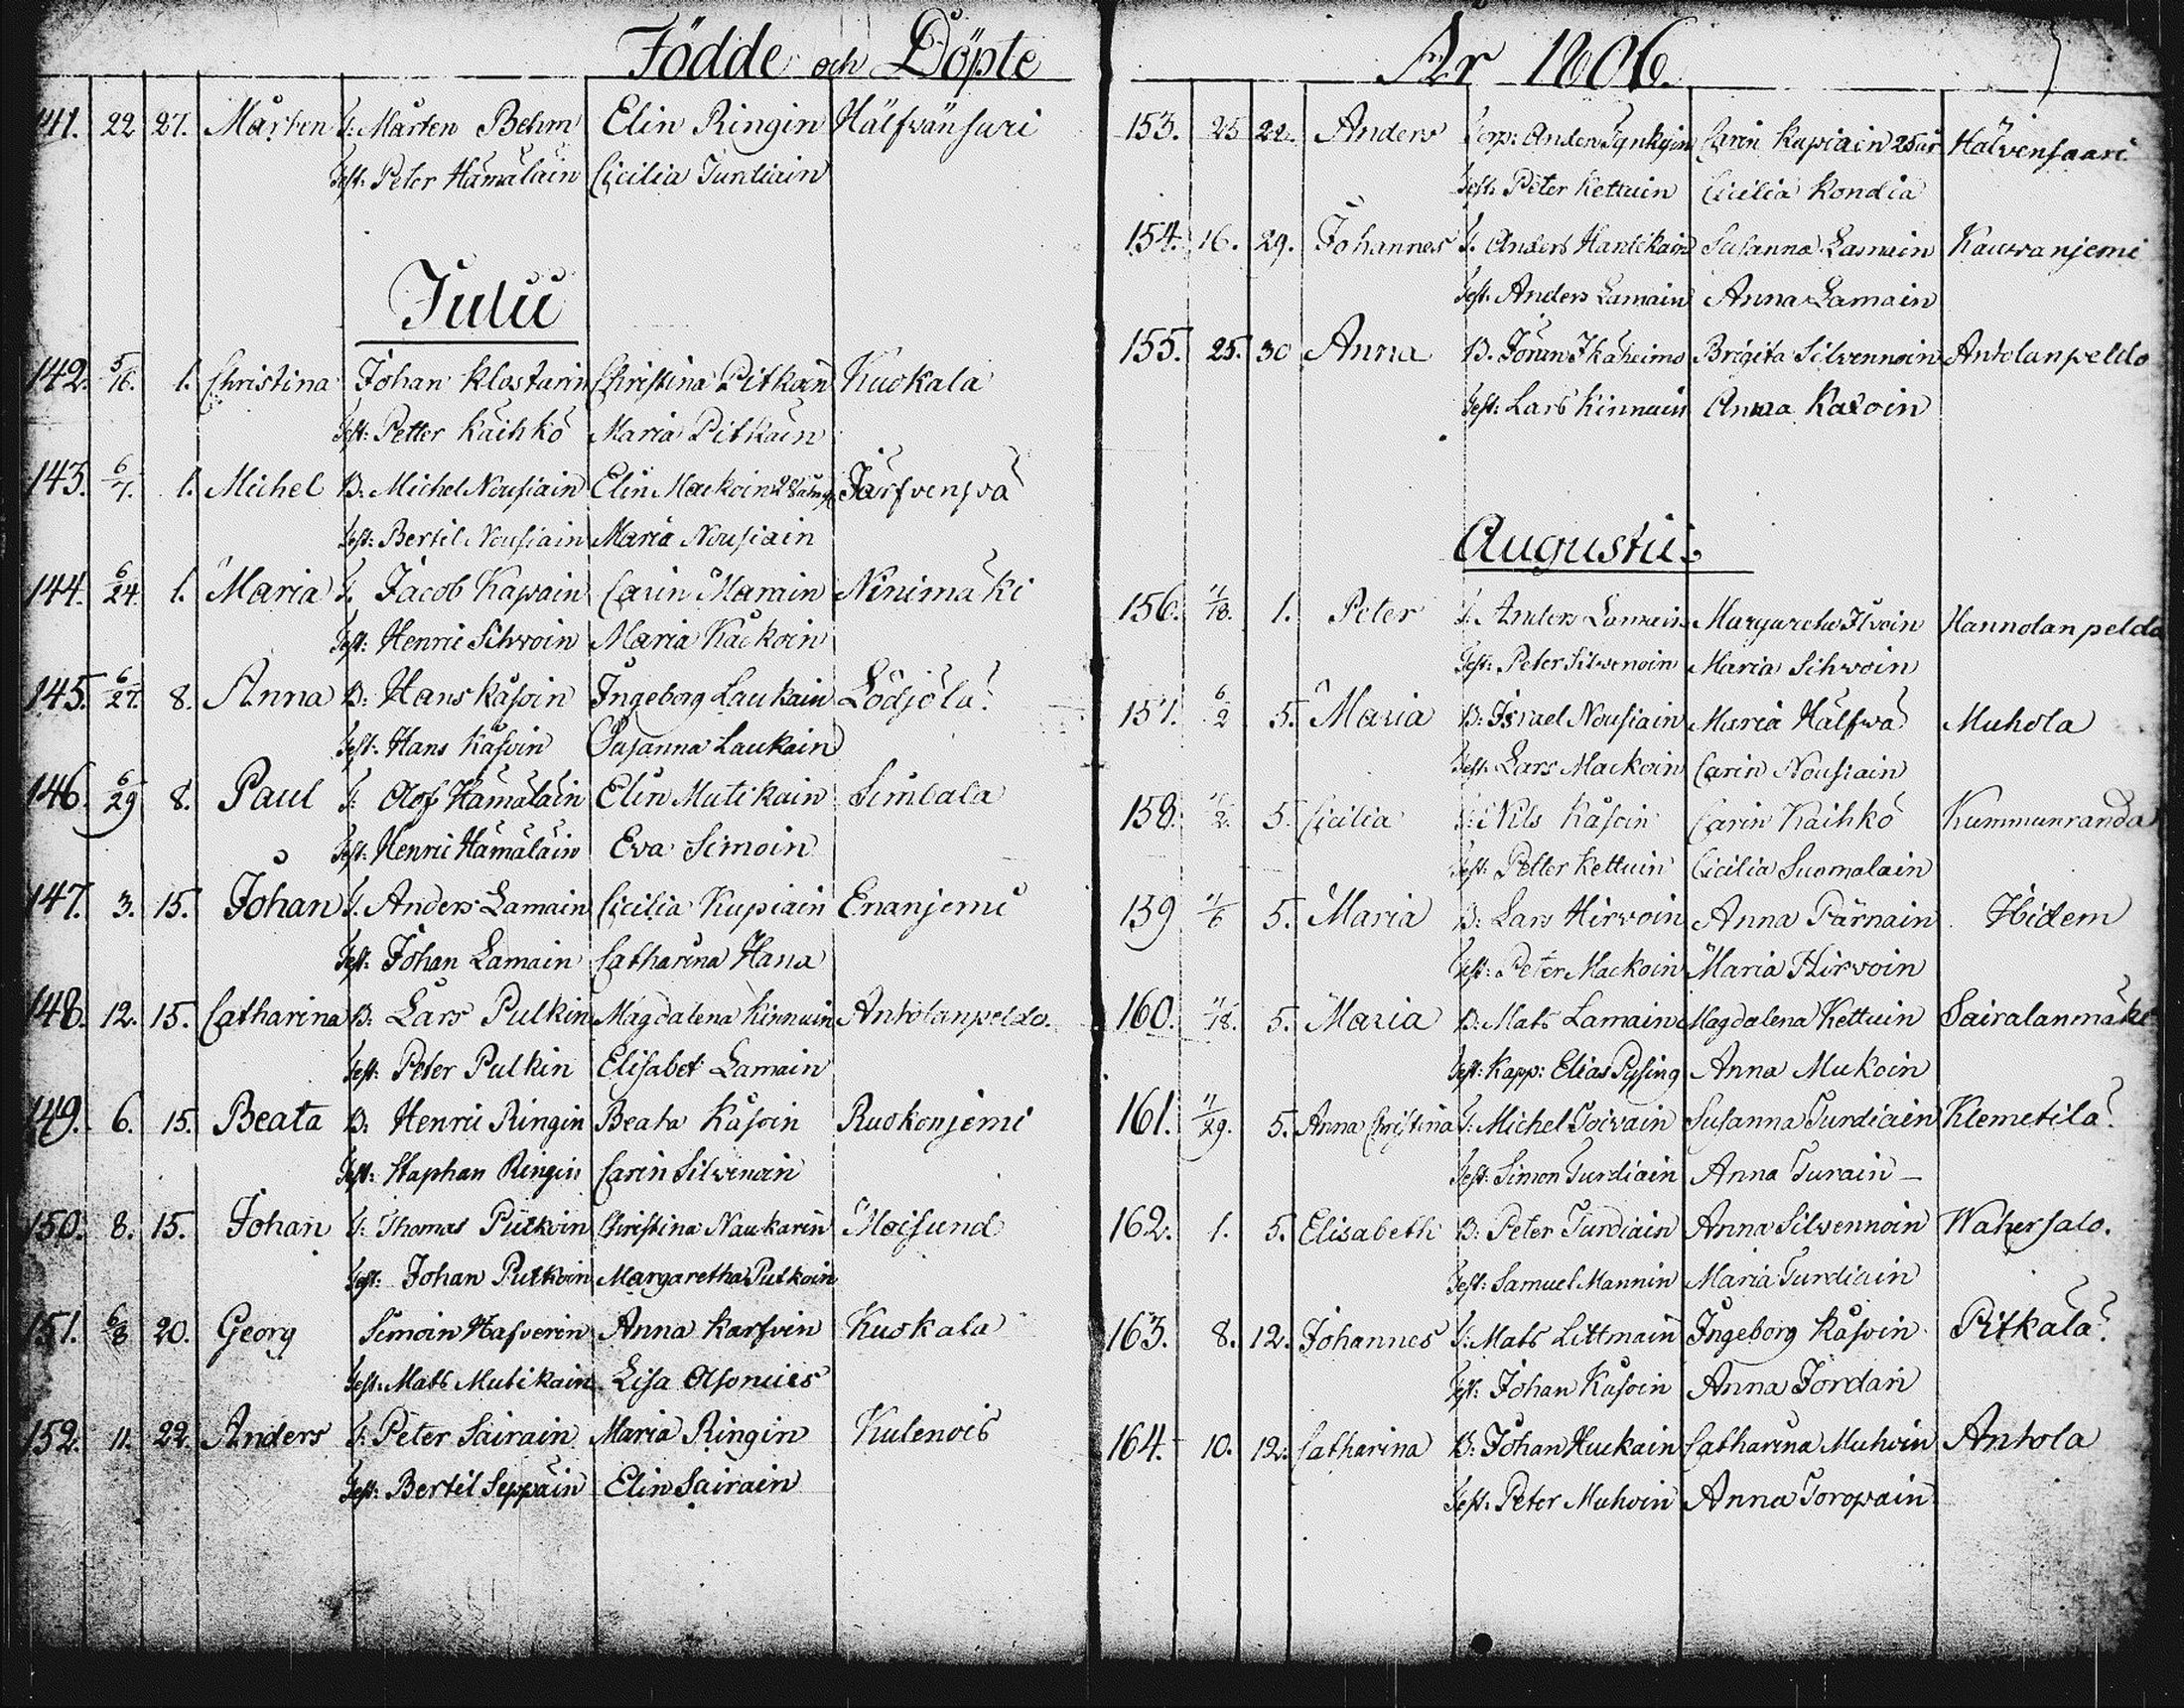 Födde och Döpte
141. 22 27. Mårten T: Mårten Behm Elin Ringin Hälfvänsuri
Test: Peter Hämäläin Cicilia Turdiain
Julii
142. 5/16. 1. Christina Johan Klostarin Christina Pitkäin Kuokala
Test: Petter Käihkö Maria Pitkäin
143. 6/7. 1. Michel B. Michel Nousiain Elin Mackoin 28 Järfvenpä
Test: Bertil Nousiain Maria Nousiain
144. 6/24. 1. Maria T. Jacob Kapain Carin Marain Ninimäki
Test: Henric Sihvoin Maria Käckoin
145. 6/27. 8. Anna B: Hans Käsoin Ingeborg Laukain Lödjölä
Test: Hans Käsoin Susanna Laukain
146. 6/29 8. Paul T: Olof Hämäläin Elin Mutikain Simbala
Test: Henric Hämäläin Eva Simoin
147. 3. 15. Johan T. Anders Lamain Cicilia Kupiain Enanjemi
Test: Johan Lamain Catharina Hana
148. 12. 15. Catharina B: Lars Pulkin Magdalena Kinnuin Antolanpeldo.
Test: Peter Pulkin Elisabet Lamain
149. 6. 15. Beata B. Henric Ringin Beata Käsoin Ruokonjemi
Test: Staphan Ringin Carin Silvenoin
150. 8. 15. Johan T: Thomas Putkoin Christina Naukarin Moisund
Test: Johan Putkoin Margaretha Putkoin
151. 6/8 20. Georg Simoin Hasverin Anna Karsvin Kuokala
Test: Mats Mutikain Lisa
152. 11. 22. Anders T: Peter Sairain Maria Ringin Kulenois
Test: Bertil Seppäin Elin Sairain
År 1806.
153. 25 22. Anders Torp: Anders Tynkyin Carin Kupiain 25 år Hälvensaari
Test: Peter Kettuin Cicilia Kondia
154. 16. 29. Johannes T. Anders Hartikain Susanna Lamain Kauvanjemi
Test: Anders Lamain Anna Lamain
155. 25. 30 Anna B. Jöran Ikäheimo Brigita Silvennoin Antolanpeldo
Test: Lars Kinnuin Anna Kaxoin
Augustii.
156. 7/18. 1. Peter T: Anders Lamain Margaretha Ilvoin Hannolanpeldo
Test: Peter Silvenoin Maria Sihvoin
157. 6/2 5. Maria B: Israel Nousiain Maria Hälfvä Muhola
Test: Lars Mackoin Carin Nousiain
158. 7/2. 5. Cicilia T: Nils Käsoin Carin Käihkö Kummunranda
Test: Petter Kettuin Cicilia Suomalain
159 7/6 5. Maria B: Lars Hirvoin Anna Pärnain Ibidem
Test: Peter Mackoin Maria Hirvoin
160. 7/18. 5. Maria B: Mats Lamain Magdalena Kettuin Sairalanmäki
Test: Kapp: Elias Pysing Anna Mukoin
161. 7/29. 5. Anna Christina T: Michel Toivain Susanna Turdiain Klemetilä
Test: Simon Turdiain Anna Turain
162. 1. 5. Elisabeth B: Peter Turdiain Anna Silvennoin Wahersalo.
Test: Samuel Mannin Maria Turdiain
163. 8. 12. Johannes T: Mats Littmain Ingeborg Käsoin Pitkälä
Test: Johan Käsoin Anna Jordan
164. 10. 12. Catharina B: Johan Huckain Catharina Muhoin Antola
Test: Peter Muhoin Anna Toropain